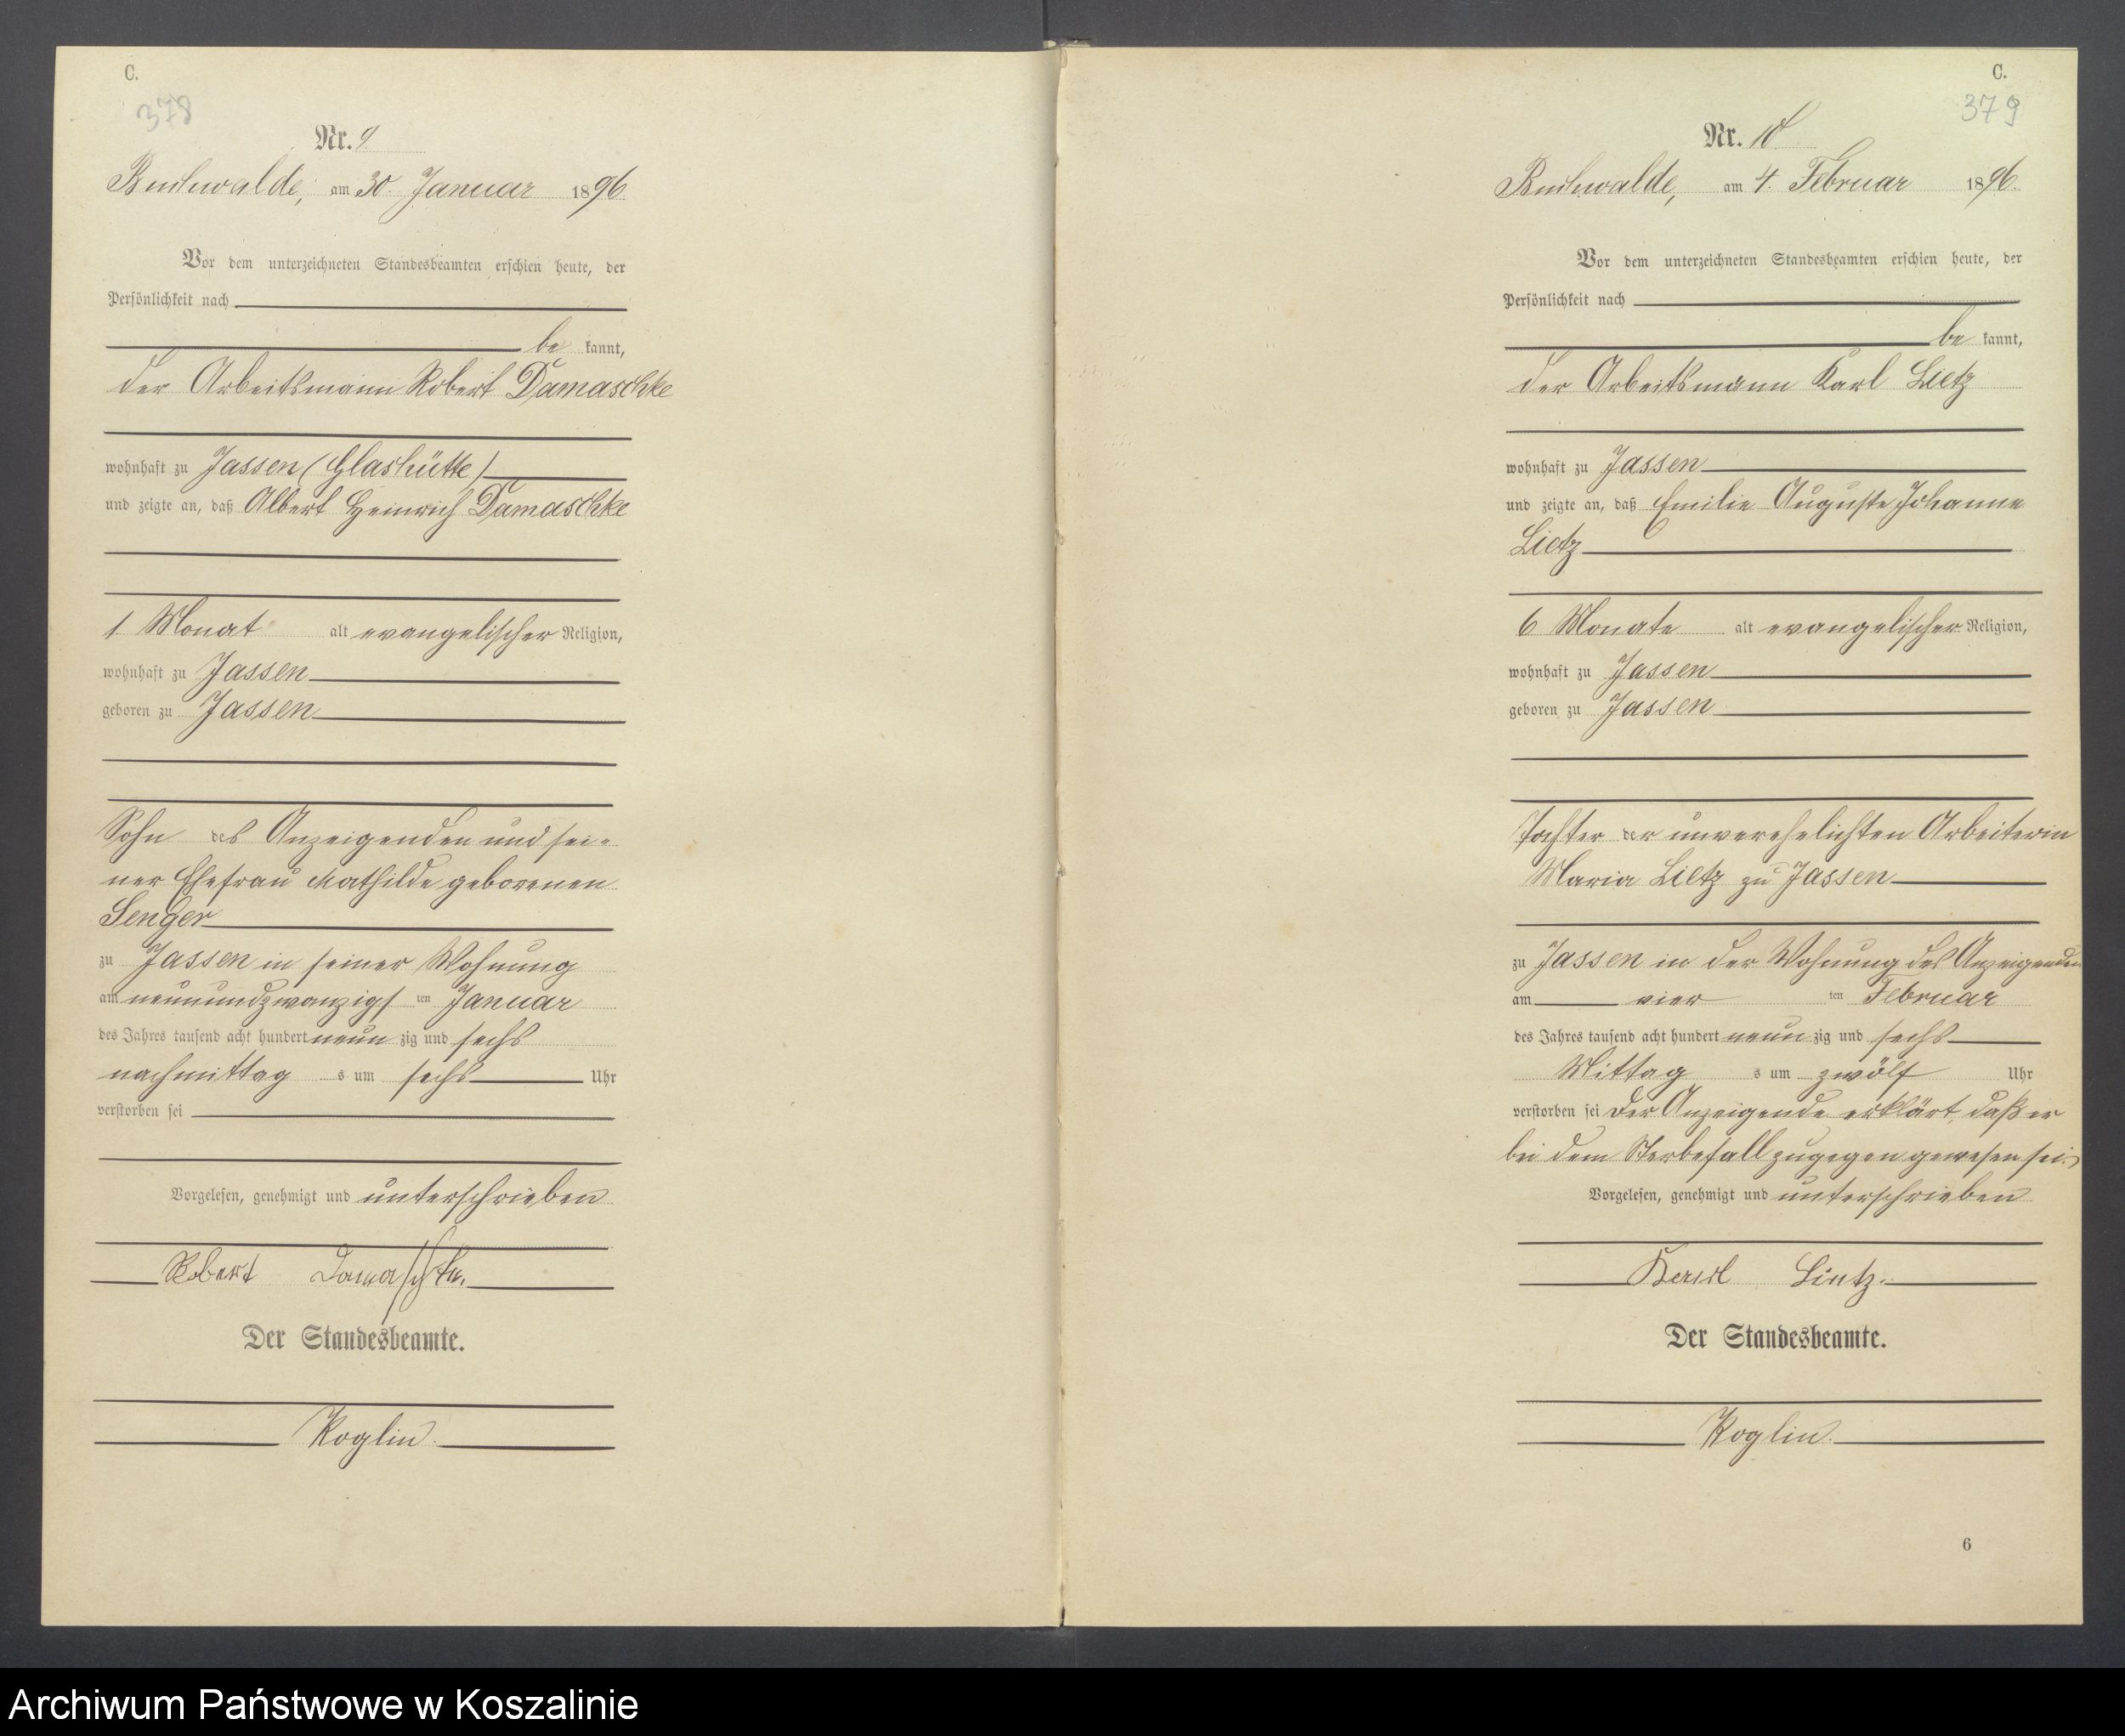 C.
378
Nr. 9
Buchwalde, am 30. Januar 1896.
Vor dem unterzeichneten Standesbeamten erschien heute, der
Persönlichkeit nach
be kannt,
der Arbeitsmann Robert Damaschke
wohnhaft zu Jassen (Glashütte)
und zeigte an, daß Albert Heinrich Damaschke
1 Monat alt evangelischer Religion,
wohnhaft zu Jassen
geboren zu Jassen
Sohn des Anzeigenden und sei=
ner Ehefrau Mathilde geborenen
Senger
zu Jassen in seiner Wohnung
am neunundzwanzigs ten Januar
des Jahres tausend acht hundert neun zig und sechs
nachmittag s um sechs Uhr
verstorben sei
Vorgelesen, genehmigt und unterschrieben
Robert Damaschke.
Der Standesbeamte.
Koglin.
C.
379
Nr. 10
Buchwalde, am 4. Februar 1896.
Vor dem unterzeichneten Standesbeamten erschien heute, der
Persönlichkeit nach
be kannt,
der Arbeitsmann Karl Lietz
wohnhaft zu Jassen
und zeigte an, daß Emilie Auguste Johanne
Lietz
6 Monate alt evangelischer Religion,
wohnhaft zu Jassen
geboren zu Jassen
Tochter der unverehelichten Arbeiterin
Maria Lietz zu Jassen
zu Jassen in der Wohnung des Anzeigenden
am vier ten Februar
des Jahres tausend acht hundert neun zig und sechs
Mittag s um zwölf Uhr
verstorben sei Der Anzeigende erklärt, daß er
bei dem Sterbefall zugegen gewesen sei.
Vorgelesen, genehmigt und unterschrieben
Karl Lietz.
Der Standesbeamte.
Koglin.
6
Archiwum Państwowe w Koszalinie